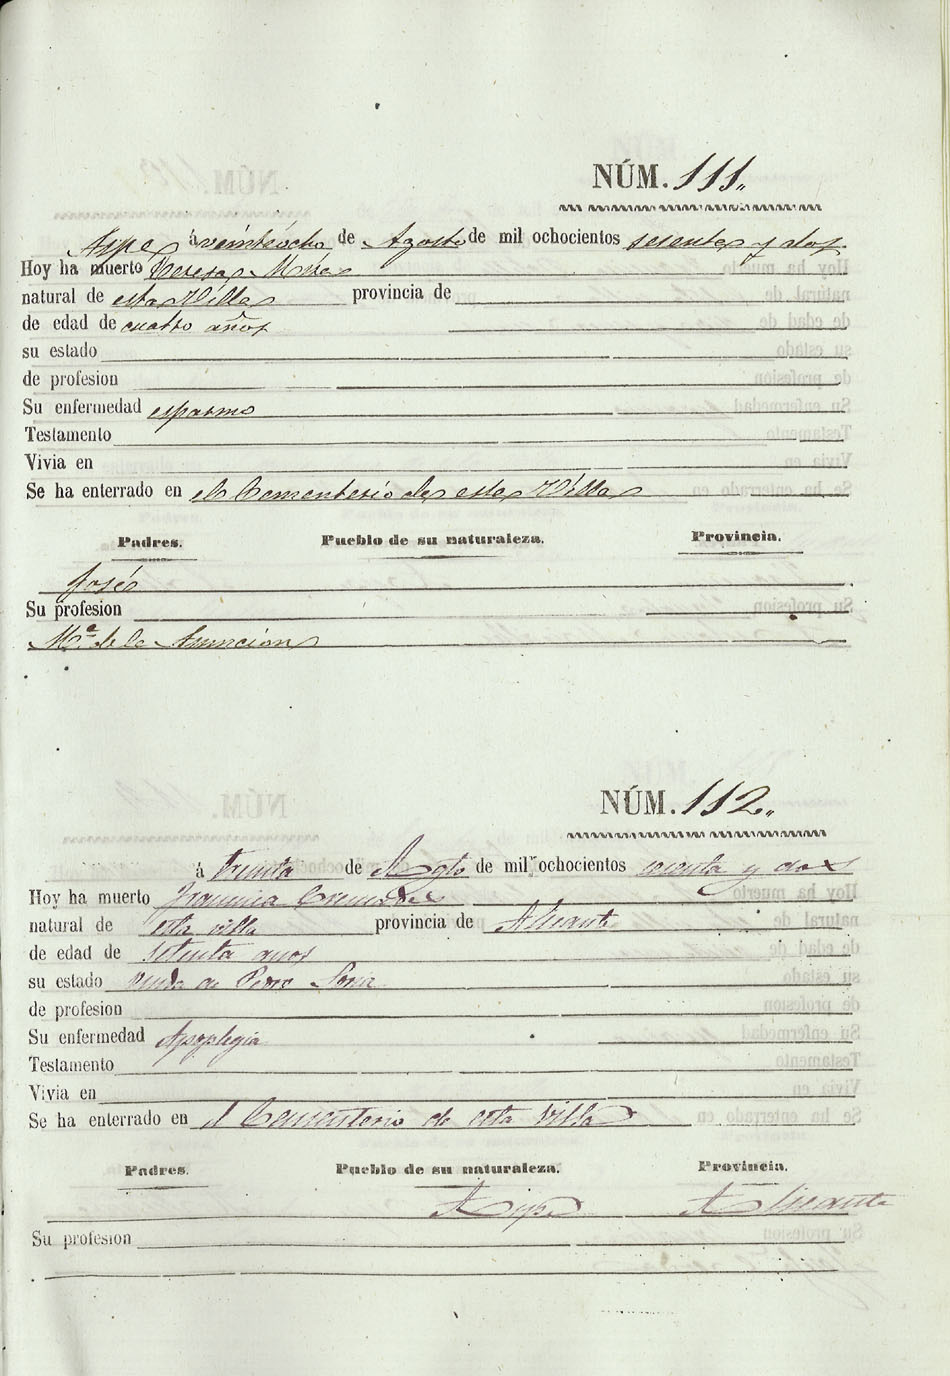 NÚM. 111.
Aspe á veintiocho de Agosto de mil ochocientos sesenta y dos
Hoy ha muerto Teresa Mira
natural de esta Villa provincia de
de edad de cuatro años
su estado
de profesion
Su enfermedad espasmo
Testamento
Vivia en
Se ha enterrado en el Cementerio de esta Villa
Padres. Pueblo de su naturaleza. Provincia.
José
Su profesion
Mª. de la Asuncion
NÚM. 112.
á treinta de Agto de mil ochocientos sesenta y dos
Hoy ha muerto Francisca Cremades
natural de esta villa provincia de Alicante
de edad de setenta años
su estado Viuda de Pedro Soria
de profesion
Su enfermedad Apoplegia
Testamento
Vivia en
Se ha enterrado en el Cementerio de esta Villa
Padres. Pueblo de su naturaleza. Provincia.
Aspe Alicante
Su profesion